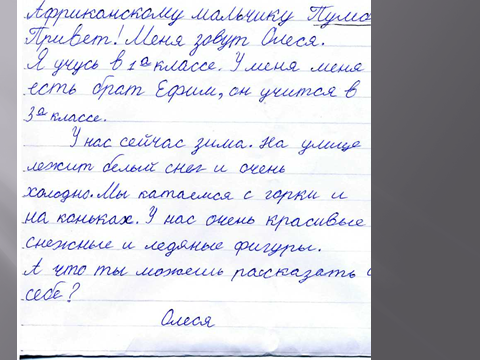 Африканскому мальчику Пумо
Привет! Меня зовут Олеся.
Я учусь в 1а классе. У меня меня
есть брат Ефим, он учится в
3а классе.
У нас сейчас зима. На улице
лежит белый снег и очень
холодно. Мы катаемся с горки и
на коньках. У нас очень красивые
снежные и ледяные фигуры.
А что ты можешь рассказать о
себе?
Олеся